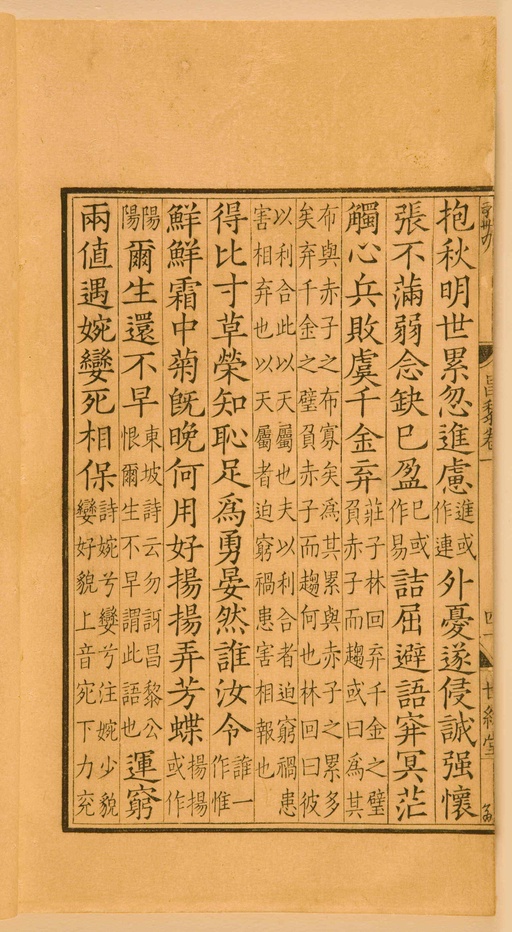 昌黎卷一
四
世綵堂
抱秋明世累忽進慮進或作連外憂遂侵誠强懷
張不滿弱念缺已盈已或作易詰屈避語穽冥茫
觸心兵敗虞千金弃莊子林回弃千金之璧負赤子而趨或曰爲其
布與赤子之布寡矣爲其累與赤子之累多矣弃千金之璧負赤子而趨何也林回曰彼
以利合此以天屬也夫以利合者迫窮禍患害相弃也以天屬者迫窮禍患害相報也
得比寸草榮知恥足爲勇晏然誰汝令誰一作惟
鮮鮮霜中菊旣晚何用好揚揚弄芳蝶揚揚或作
陽陽爾生還不早東坡詩云勿訝昌黎公恨爾生不早謂此語也運窮
兩值遇婉孌死相保詩婉兮孌兮注婉少貌孌好貌上音宛下力充